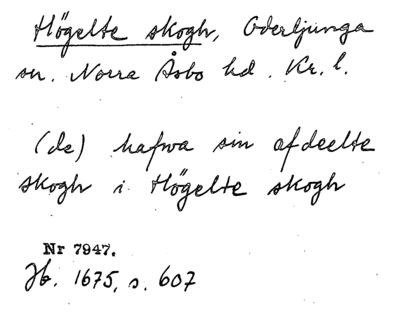 Högelte skogh, Oderljunga
sn. Norra Åsbo hd. Kr. l.
(de) hafwa sin afdeelte
skogh i Högelte skogh
Nr 7947.
Jb. 1675, s. 607